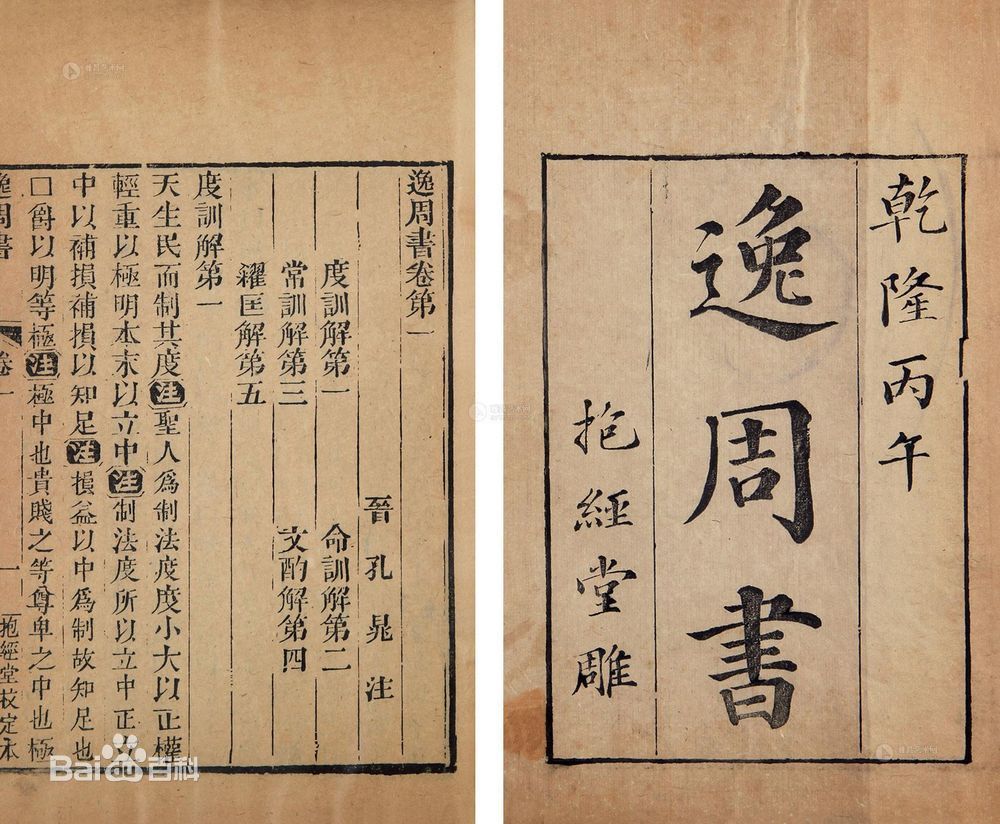 乾隆丙午
逸周書
抱經堂雕
逸周書卷第一
晉孔晁注
度訓解第一 命訓解第二
常訓解第三 文酌解第四
糴匡解第五
度訓解第一
天生民而制其度注聖人爲制法度度小大以正權
輕重以極明本末以立中注制法度所以立中正文
中以補損補損以知足注損益以中爲制故知足也
□爵以明等極注極中也貴賤之等尊卑之中也極
逸周書 卷一 一 抱經堂校定本
Bai du 百科